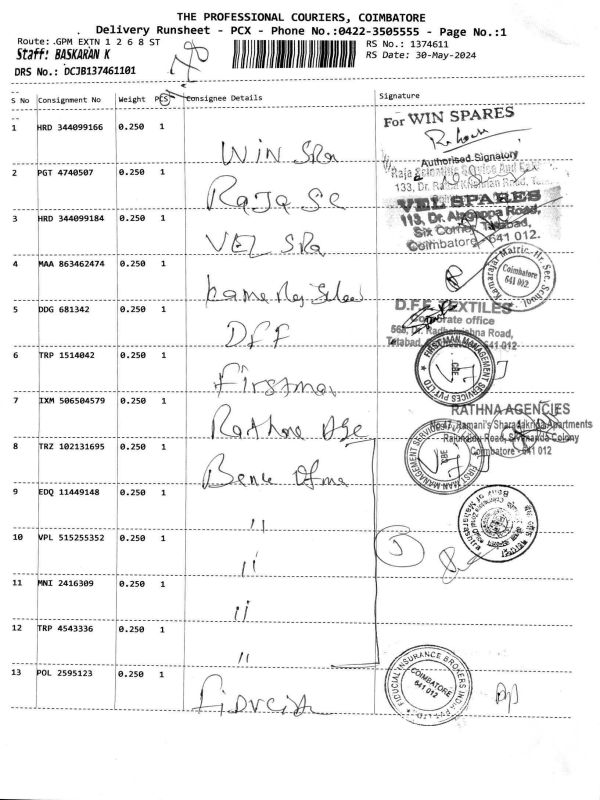 THE PROFESSIONAL COURIERS, COIMBATORE
Delivery Runsheet - PCX - Phone No.:0422-3505555 - Page No.:1
Route: .GPM EXTN 1 2 6 8 ST
RS No.: 1374611
Staff: BASKARAN K
RS Date: 30-May-2024
DRS No.: DCJB137461101
S No Consignment No Weight PCS Consignee Details Signature
1 HRD 344099166 0.250 1 WIN SPA
For WIN SPARES
Authorised Signatory
2 PGT 4740507 0.250 1 RAJA SC
133, Dr.
3 HRD 344099184 0.250 1 VEL SPA
VEL SPARES
113, Dr. Alagappa Road,
Six Corner, Tatabad,
Coimbatore - 641 012.
4 MAA 863462474 0.250 1
Kamarajar Matric. Hr. Sec. School
Coimbatore
641 002
5 DDG 681342 0.250 1 DFF
D.F.F. TEXTILES
Corporate office
Radhakrishna Road,
Tatabad, 641 012
6 TRP 1514042 0.250 1 Firstman
FIRST MAN MANAGEMENT SERVICES PVT LTD
CBE
7 IXM 506504579 0.250 1 Rathna Age
RATHNA AGENCIES
No.47, Ramani's Sharadakripa Apartments
Road, Sivananda Colony
Coimbatore - 641 012
8 TRZ 102131695 0.250 1 Bank Of ma
FIRST MAN MANAGEMENT SERVICES PVT LTD
CBE
9 EDQ 11449148 0.250 1 "
Bank of Maharashtra
10 VPL 515255352 0.250 1 "
5
11 MNI 2416309 0.250 1 "
12 TRP 4543336 0.250 1 "
13 POL 2595123 0.250 1
FIDUCIAL INSURANCE BROKERS INDIA PVT LTD
COIMBATORE
641 012